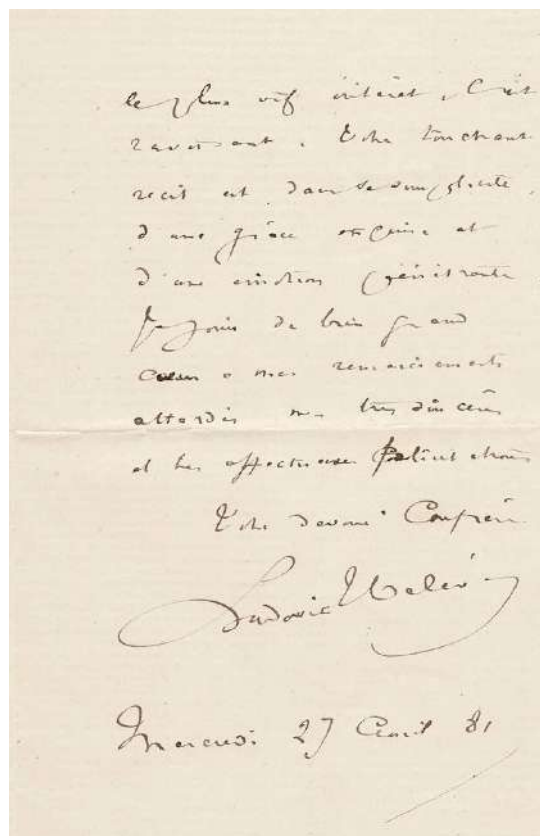 le plus vif intérêt, C'est
ravissant. Votre touchant
récit est dans sa simplicité,
d'une grâce exquise et
d'une émotion pénétrante
Je joins de bien grand
cœur à mes remerciements
attardés mes très sincères
et très affectueuses félicitations
Votre dévoué Confrère
Ludovic Halévy
Mercredi 27 Avril 81